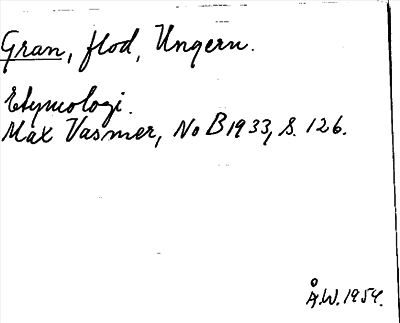 Gran, flod, Ungern.
Etymologi.
Max Vasmer, No B 1933, S. 126.
Å.W. 1954.